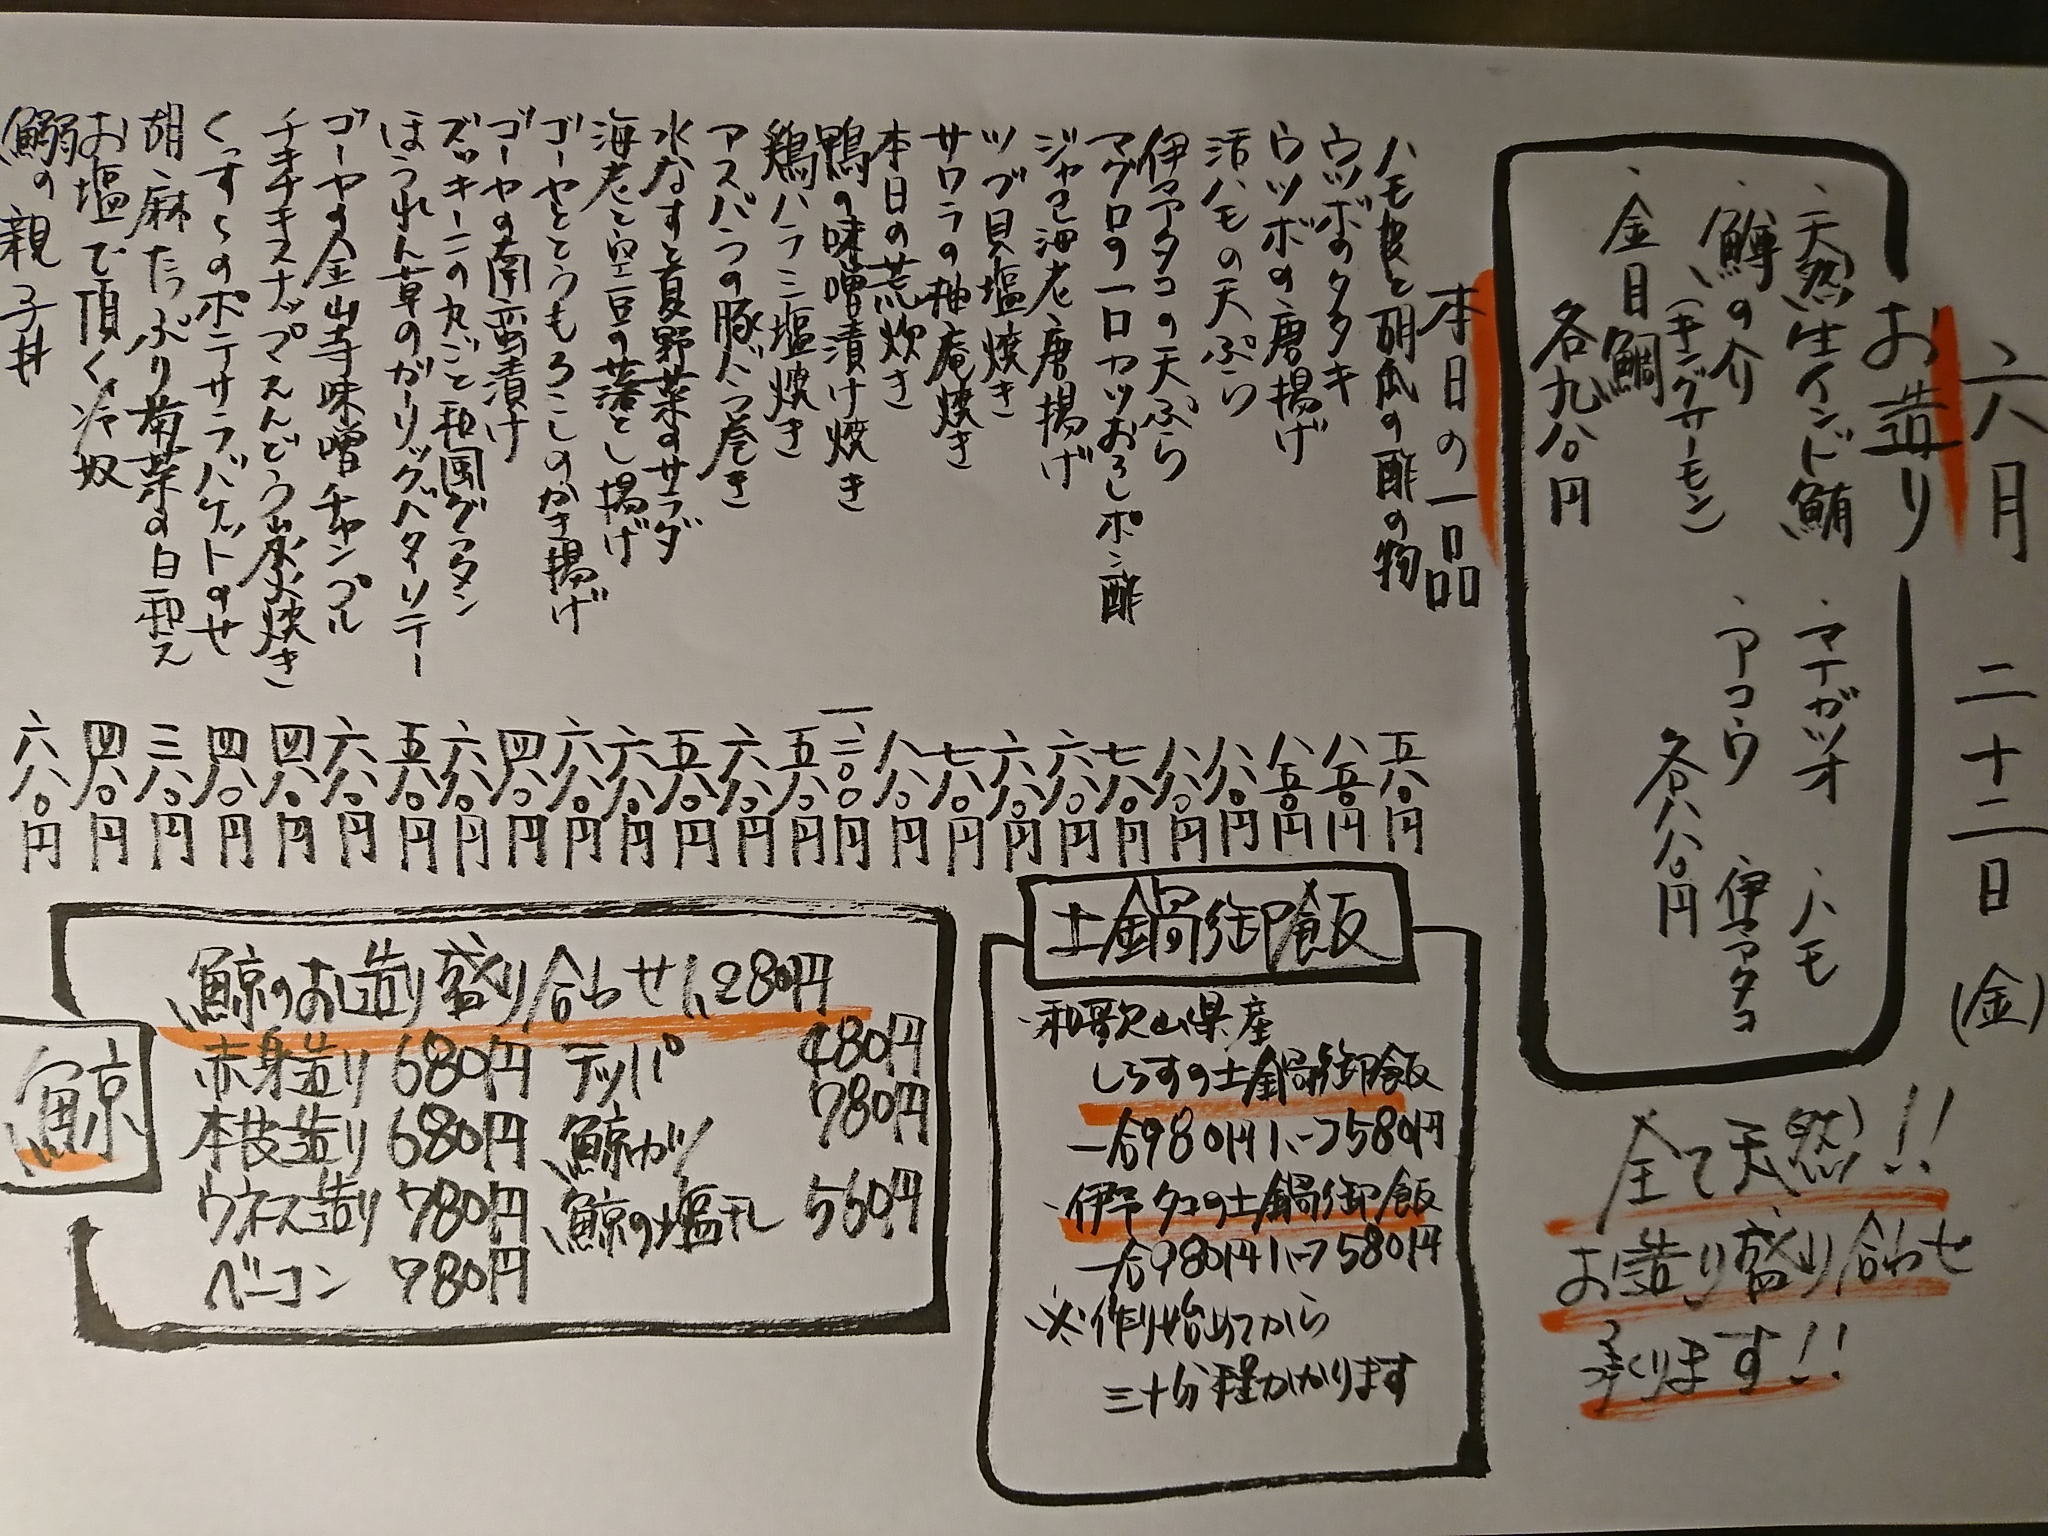 六月 二十二日(金)
お造り
・天然生インド鮪
・鱒の介
(キングサーモン)
・金目鯛
各九八〇円
・マナガツオ
・アコウ
・ハモ
・伊予タコ
各八八〇円
全て天然!!
お造り盛り合わせ
承ります!!
本日の一品
ハモ皮と胡瓜の酢の物 五八〇円
ウツボのタタキ 八五〇円
ウツボの唐揚げ 八五〇円
活ハモの天ぷら 八八〇円
伊予タコの天ぷら 八八〇円
マグロの一口カツおろしポン酢 七八〇円
ジャコ海老唐揚げ 六八〇円
ツブ貝塩焼き 六八〇円
サワラの柚庵焼き 七八〇円
本日の荒炊き 八八〇円
鴨の味噌漬け焼き 一、二〇〇円
鶏ハラミ塩焼き 五八〇円
アスパラの豚バラ巻き 六八〇円
水なすと夏野菜のサラダ 五八〇円
海老と空豆の落とし揚げ 六八〇円
ゴーヤととうもろこしのかき揚げ 六八〇円
ゴーヤの南蛮漬け 四八〇円
ズッキーニの丸ごと和風グラタン 六八〇円
ほうれん草のガーリックバターソテー 五八〇円
ゴーヤの金山寺味噌チャンプル 六八〇円
チキチキスナップえんどう炭火焼き 四八〇円
くっすんのポテサラバケットのせ 四八〇円
胡麻たっぷり菊菜の白和え 三八〇円
お塩で頂く冷奴 四八〇円
鰯の親子丼 六八〇円
土鍋御飯
・和歌山県産
しらすの土鍋御飯
一合980円ハーフ580円
・伊予タコの土鍋御飯
一合980円ハーフ580円
※作り始めてから
三十分程かかります
鯨
鯨のお造り盛り合わせ1,280円
赤身造り 680円
本皮造り 680円
ウネス造り 780円
ベーコン 780円
テッパ 480円
鯨カツ 780円
鯨の塩干し 550円